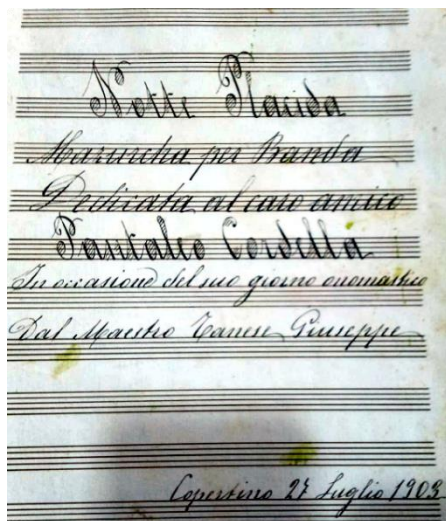 Notte Placida
Mazurcha per Banda
Dedicata al caro amico
Pantaleo Cordella
In occasione del suo giorno onomastico
Dal Maestro Tanese Giuseppe
Copertino 27 Luglio 1903